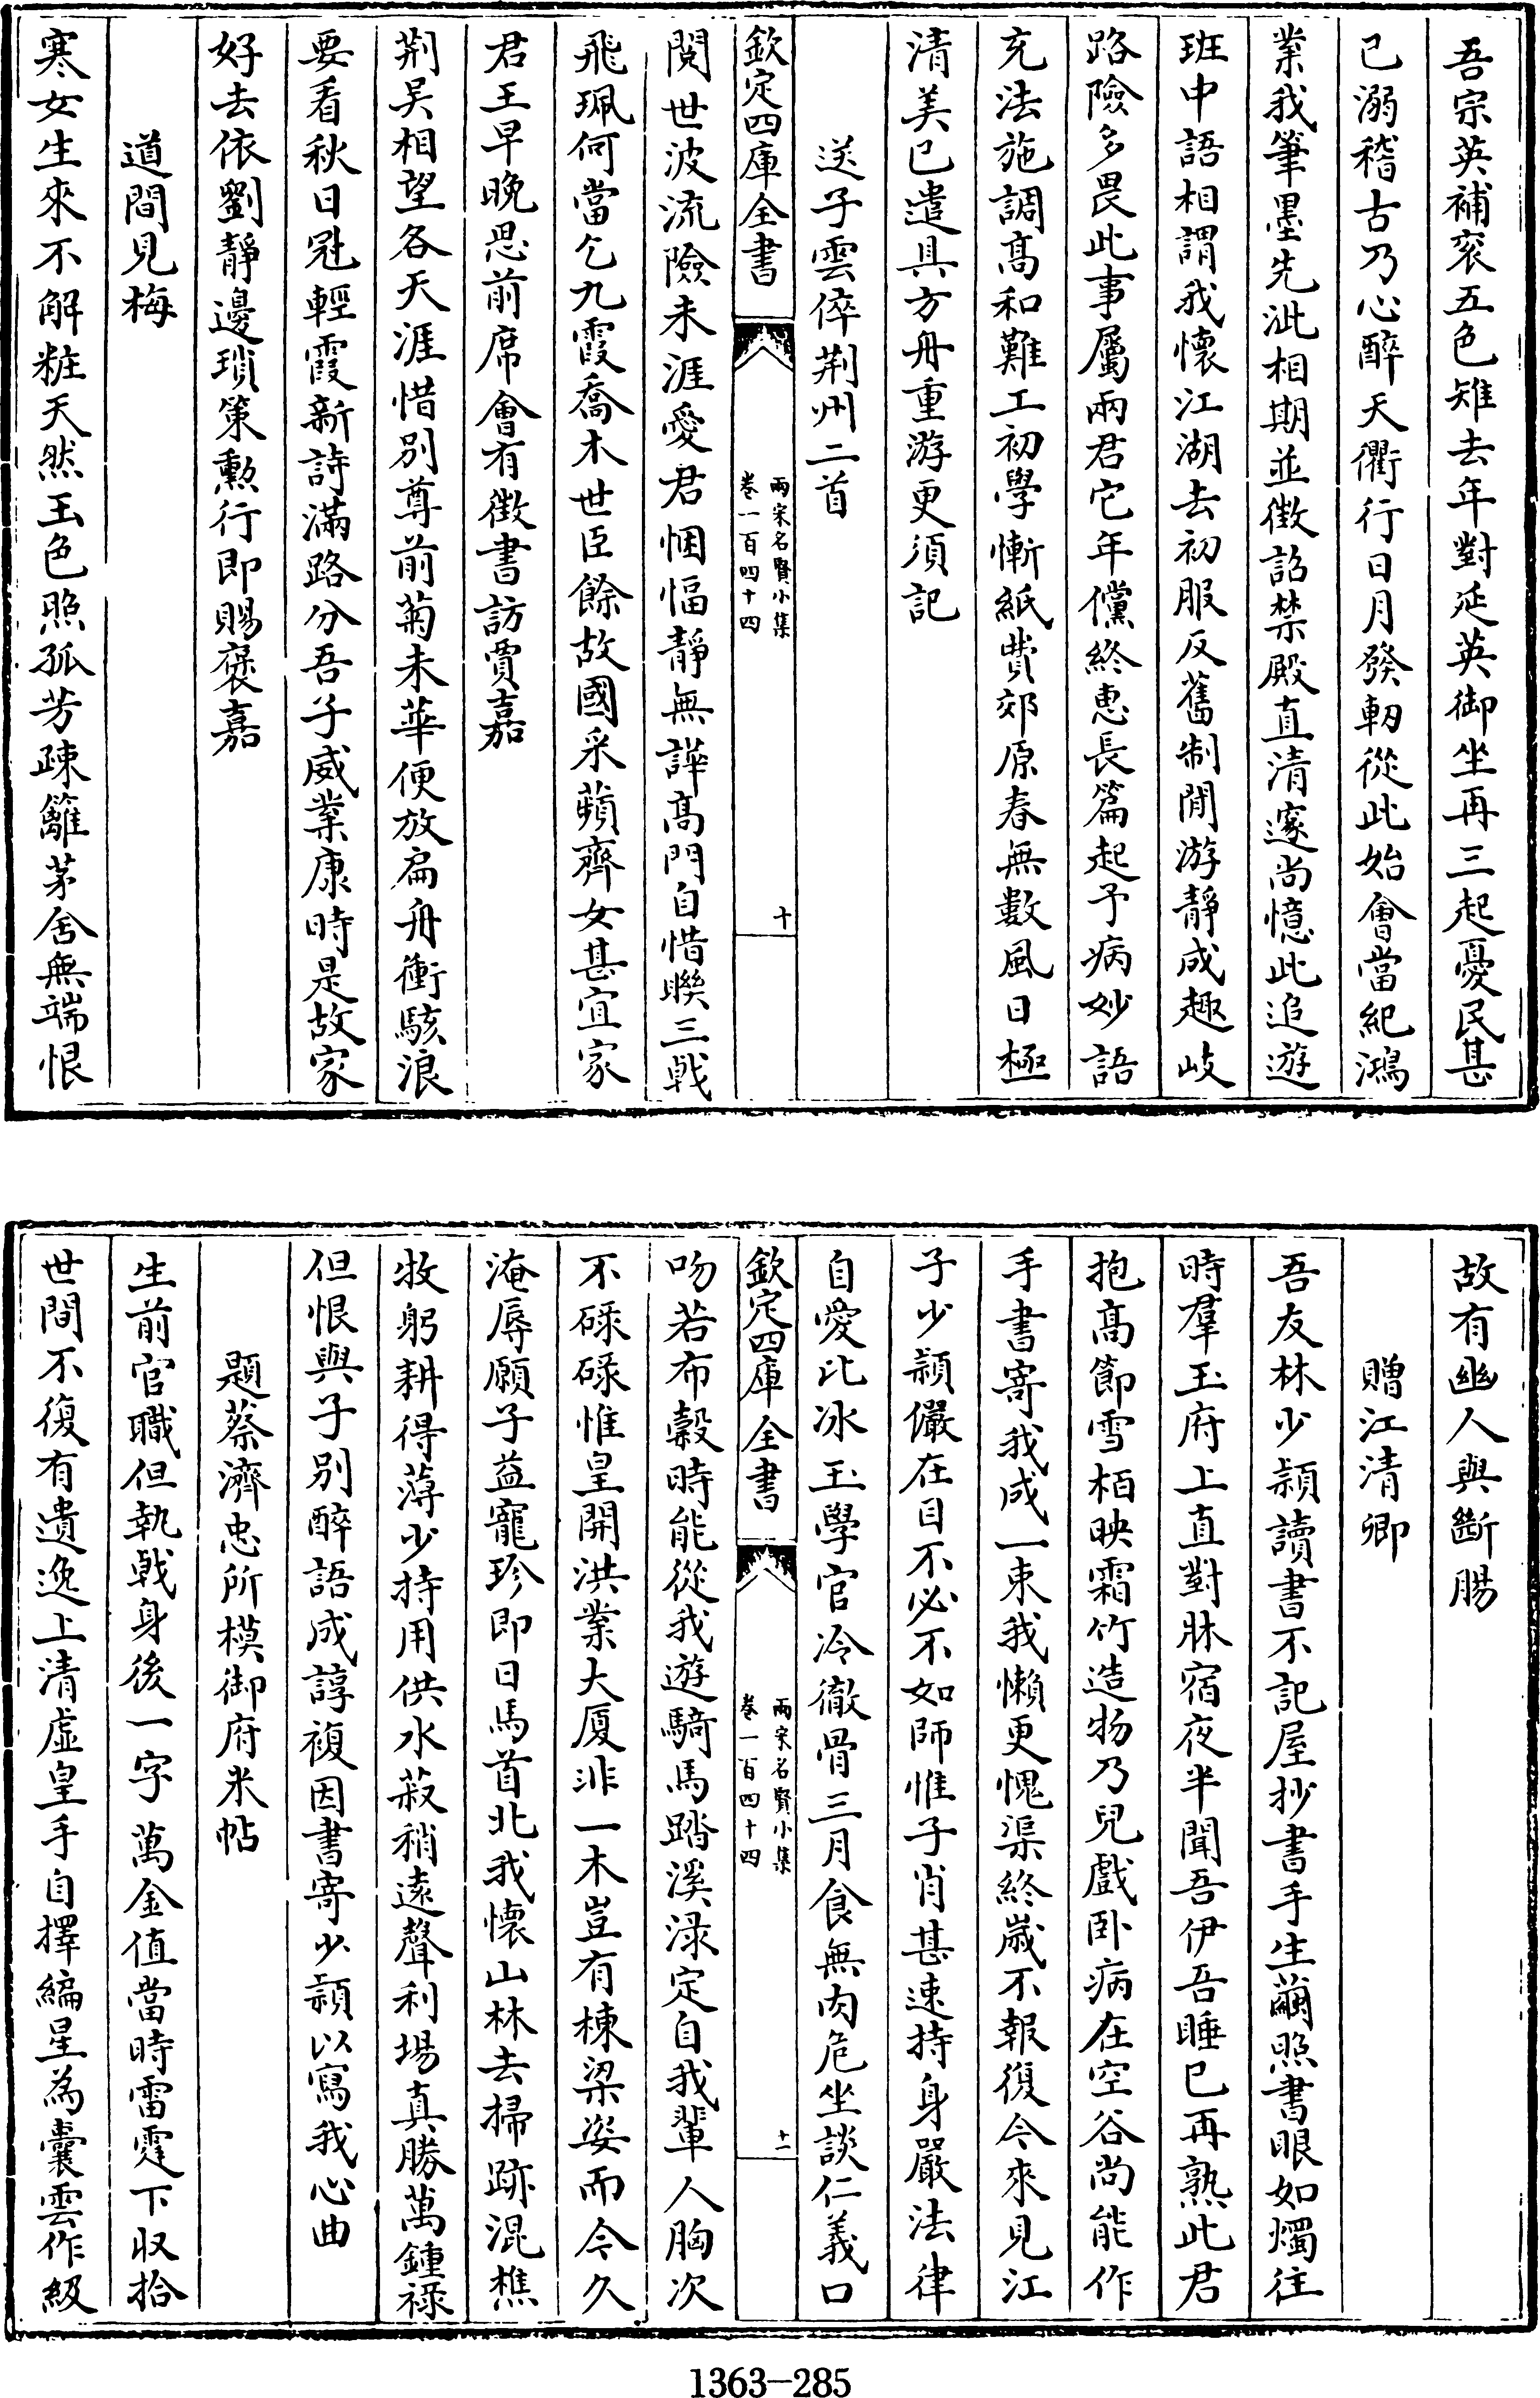 吾宗英補衮五色雉去年對延英御坐再三起憂民甚
已溺稽古乃心醉天衢行日月發軔從此始會當紀鴻
業我筆墨先泚相期並徵詔禁殿直清邃尚憶此追遊
班中語相謂我懷江湖去初服反舊制閒游靜成趣岐
路險多畏此事屬兩君它年儻終惠長篇起予病妙語
充法施調髙和難工初學慚紙費郊原春無數風日極
清美已遣具方舟重游更須記
送子雲倅荆州二首
欽定四庫全書
兩宋名賢小集
卷一百四十四
十
閱世波流險未涯愛君悃愊靜無譁髙門自惜聨三㦸
飛珮何當乞九霞喬木世臣餘故國采蘋齊女甚宜家
君王早晚思前席會有徵書訪賈嘉
荆吳相望各天涯惜別尊前菊未華便放扁舟衝駭浪
要看秋日冠輕霞新詩滿路分吾子威業康時是故家
好去依劉靜邊瑣策勲行即賜褒嘉
道間見梅
寒女生來不解粧天然玉色照孤芳疎籬茅舍無端恨
故有幽人與斷腸
贈江清卿
吾友林少頴讀書不記屋抄書手生繭照書眼如燭往
時羣玉府上直對牀宿夜半聞吾伊吾睡已再熟此君
抱髙節雪栢映霜竹造物乃兒戲卧病在空谷尚能作
手書寄我成一束我懶更愧渠終嵗不報復今來見江
子少頴儼在目不必不如師惟子肖甚速持身嚴法律
自愛比冰玉學官冷徹骨三月食無肉危坐談仁義口
欽定四庫全書
兩宋名賢小集
卷一百四十四
十一
吻若布穀時能從我遊騎馬踏溪渌定自我輩人胸次
不碌碌惟皇開洪業大厦非一木豈有棟梁姿而今久
淹辱願子益寵珍即日馬首北我懷山林去掃跡混樵
牧躬耕得薄少持用供水菽稍逺聲利場真勝萬鍾祿
但恨與子別醉語成諄複因書寄少頴以寫我心曲
題蔡濟忠所模御府米帖
生前官職但執㦸身後一字萬金值當時雷霆下収拾
世間不復有遺逸上清虛皇手自擇編星為囊雲作級
1363-285